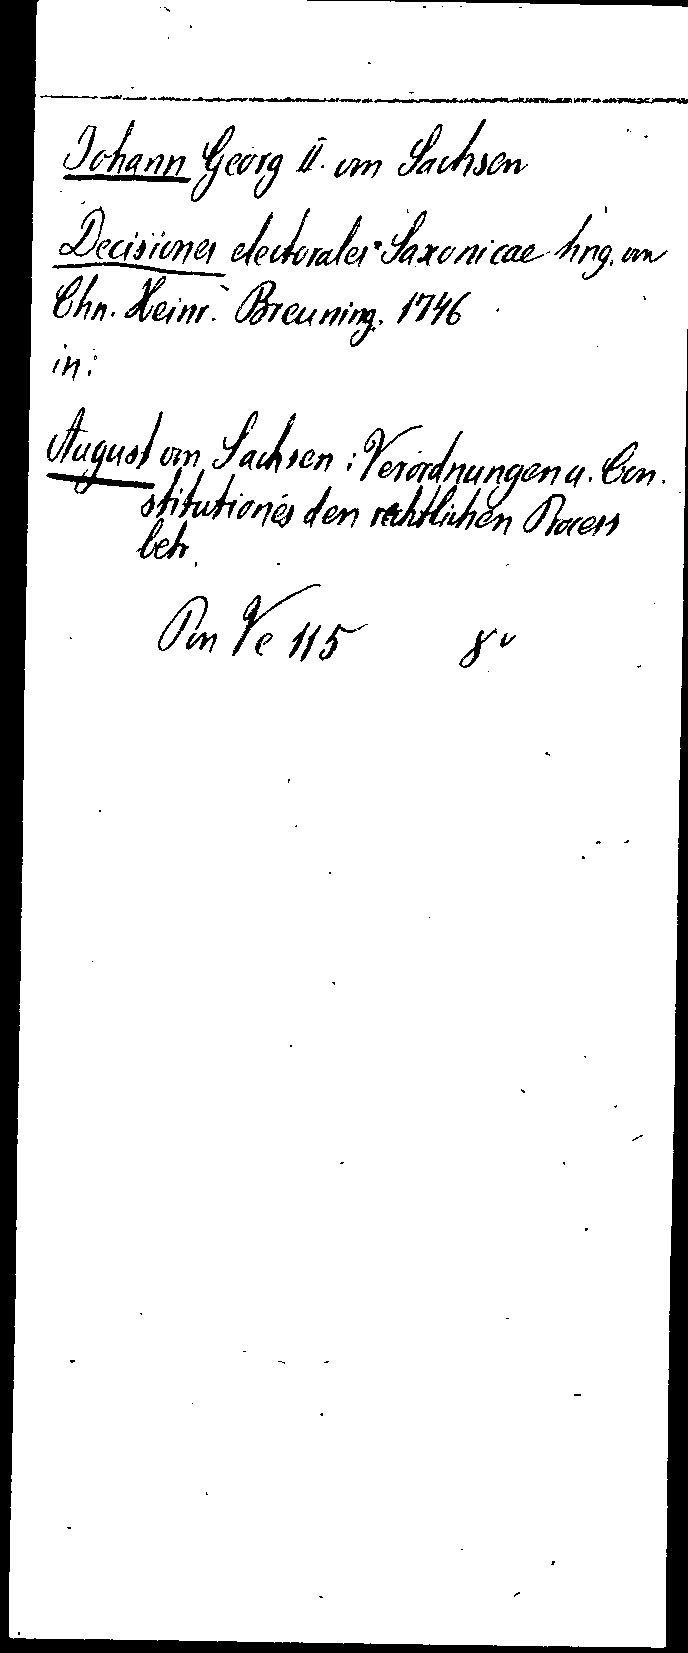 Johann Georg II. von Sachsen
Decisiones electorales Saxonicae hrsg. von
Chn. Heinr. Breuning. 1746
in:
August von Sachsen: Verordnungen u. Con-
stitutiones den rechtlichen Process
betr.
Pon Ve 115 8°